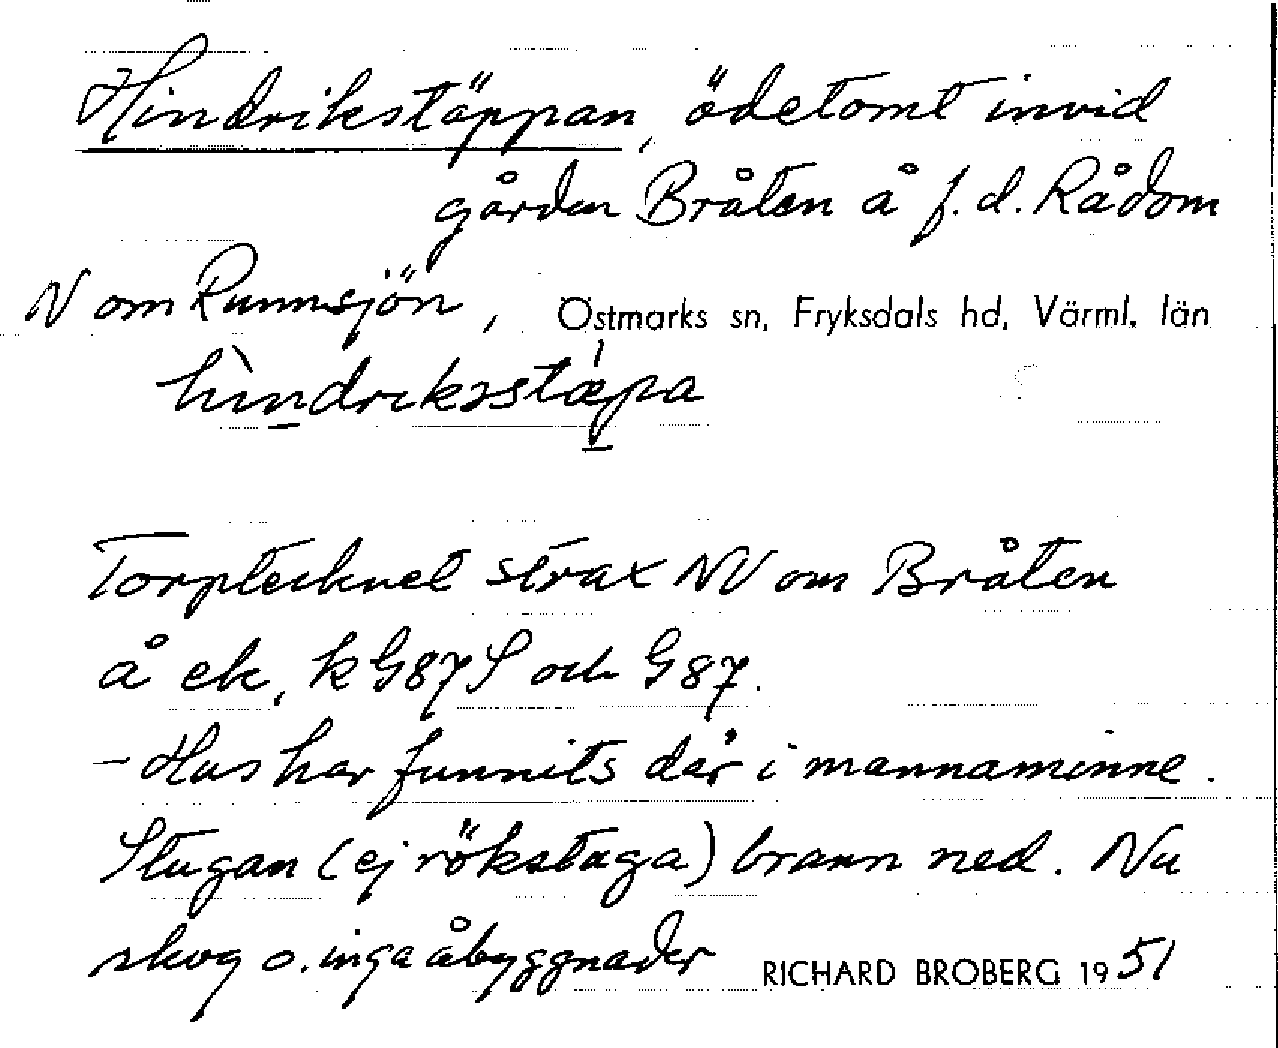 Hindrikstäppan, ödetomt invid
gården Bråten å f.d. Rådom
N om Runnsjön, Östmarks sn, Fryksdals hd, Värml. län
hìndriksstæ̍pa
Torptecknet strax NV om Bråten
å ek, k G87S och G87.
- Hus har funnits där i mannaminne.
Stugan (ej rökstuga) brann ned. Nu
skog o. inga åbyggnader RICHARD BROBERG 1951